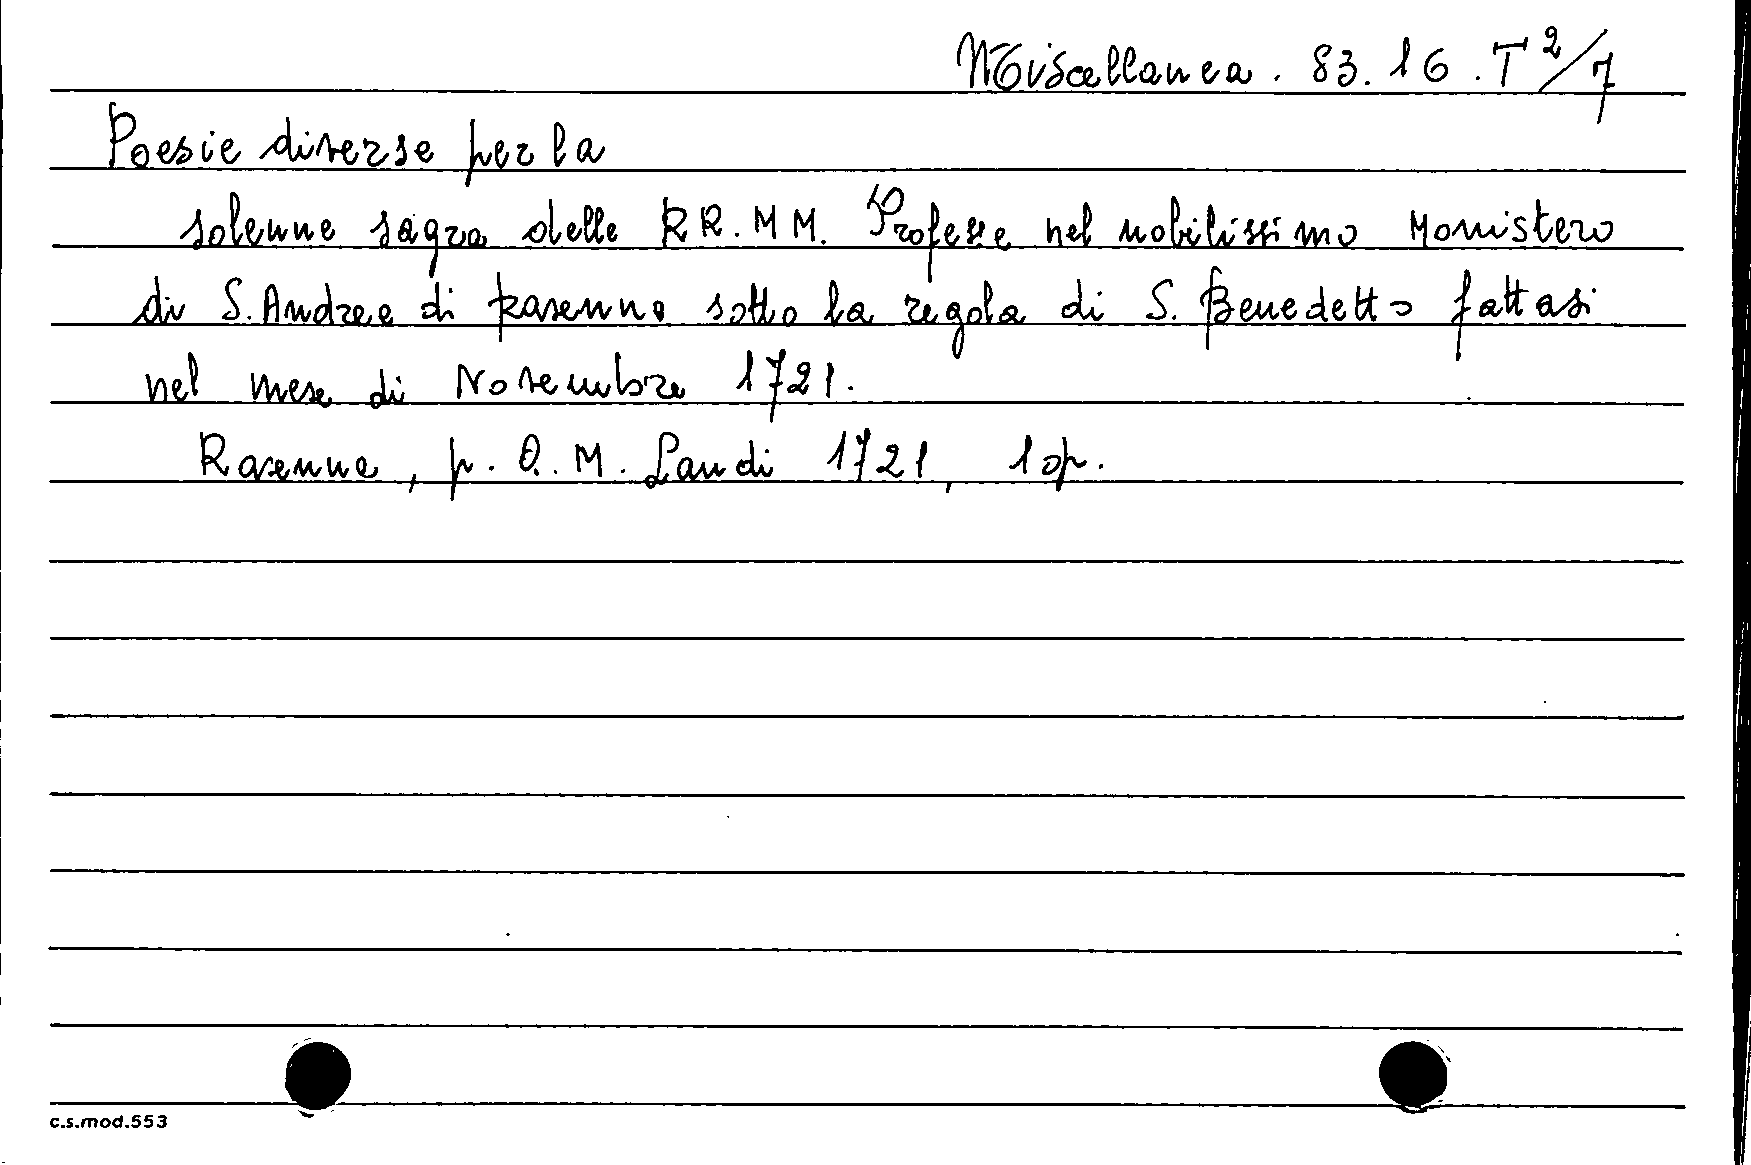 Miscellanea. 83. 16. T 2/7
Poesie diverse per la
solenne sagra delle RR. MM. Professe nel nobilissimo Monistero
di S. Andrea di Ravenna sotto la regola di S. Benedetto fattasi
nel mese di Novembre 1721.
Ravenna, p. A. M. Landi 1721, 1 op.
c.s.mod.553